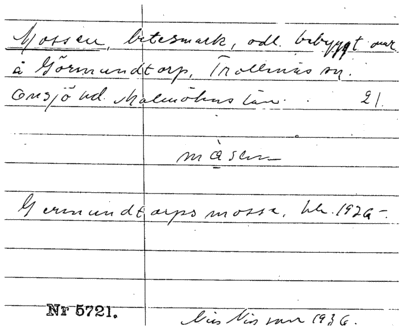 Mossen, betesmark, odl. bebyggt omr.
å Görmundtorp, Trollenäs sn.
Onsjö hd. Malmöhus län. 21.
måsen
Germundtorps mosse, hk. 1926-
Nr 5721.
Nils Nilsson 1936.